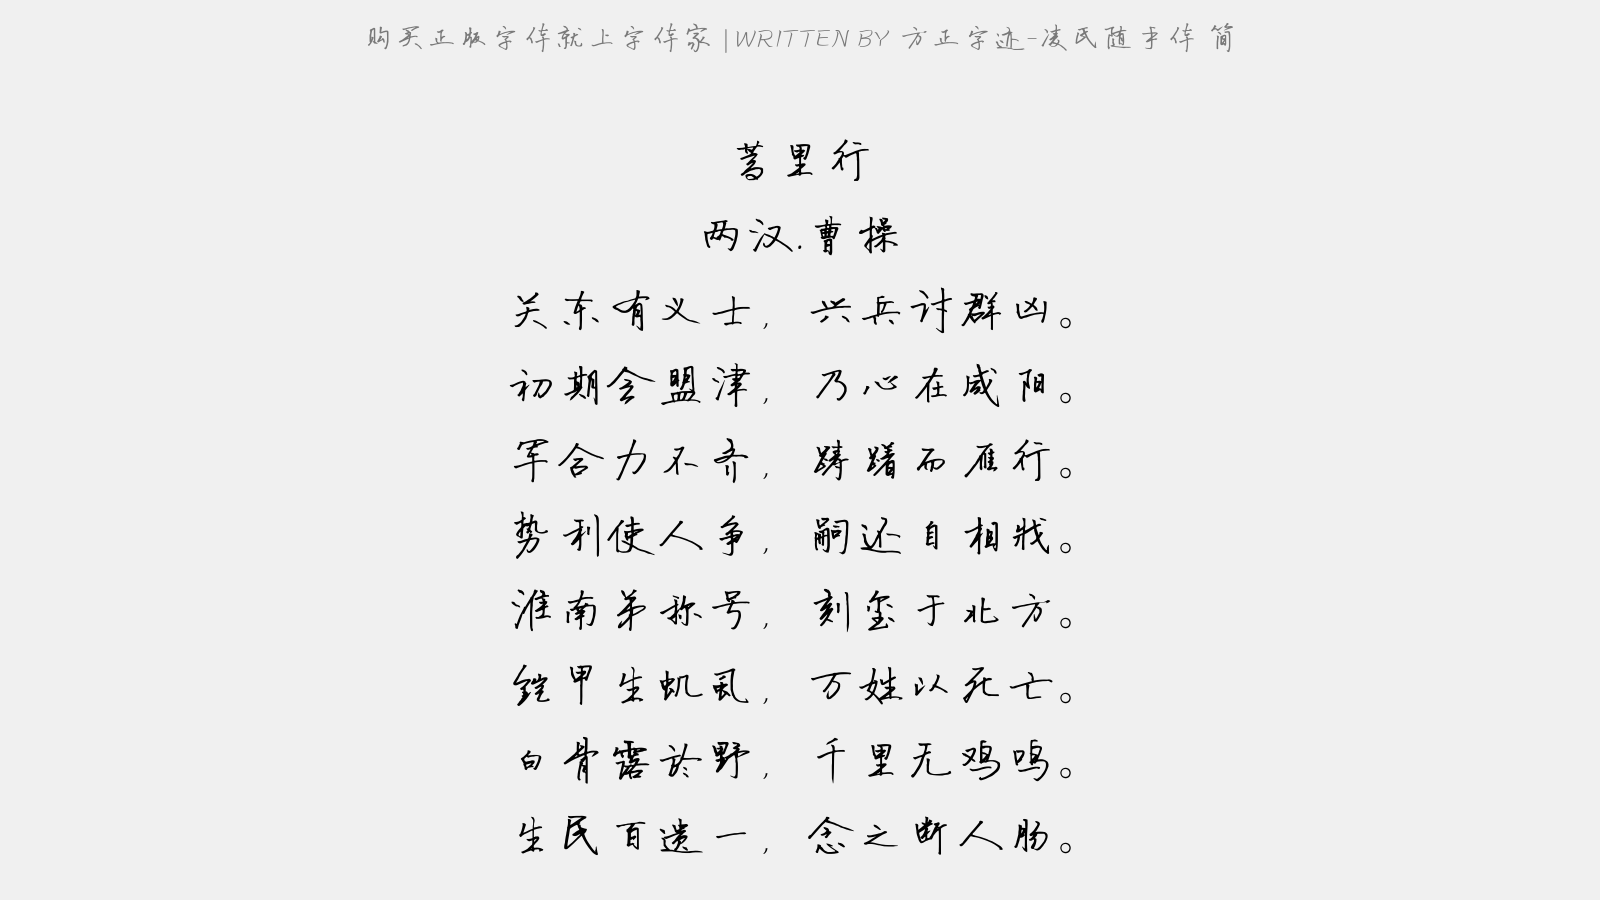 购买正版字体就上字体家 |WRITTEN BY 方正字迹-凌民随手体 简
蒿里行
两汉.曹操
关东有义士，兴兵讨群凶。
初期会盟津，乃心在咸阳。
军合力不齐，踌躇而雁行。
势利使人争，嗣还自相戕。
淮南弟称号，刻玺于北方。
铠甲生虮虱，万姓以死亡。
白骨露於野，千里无鸡鸣。
生民百遗一，念之断人肠。